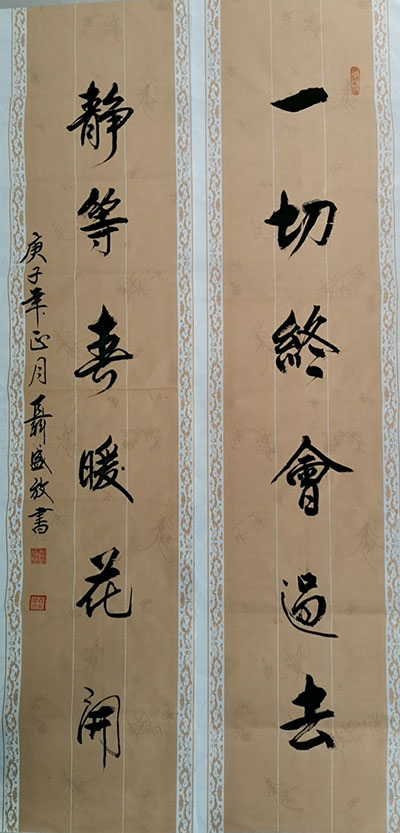 一切終會過去
静等春暖花開
庚子年正月聶盛放書